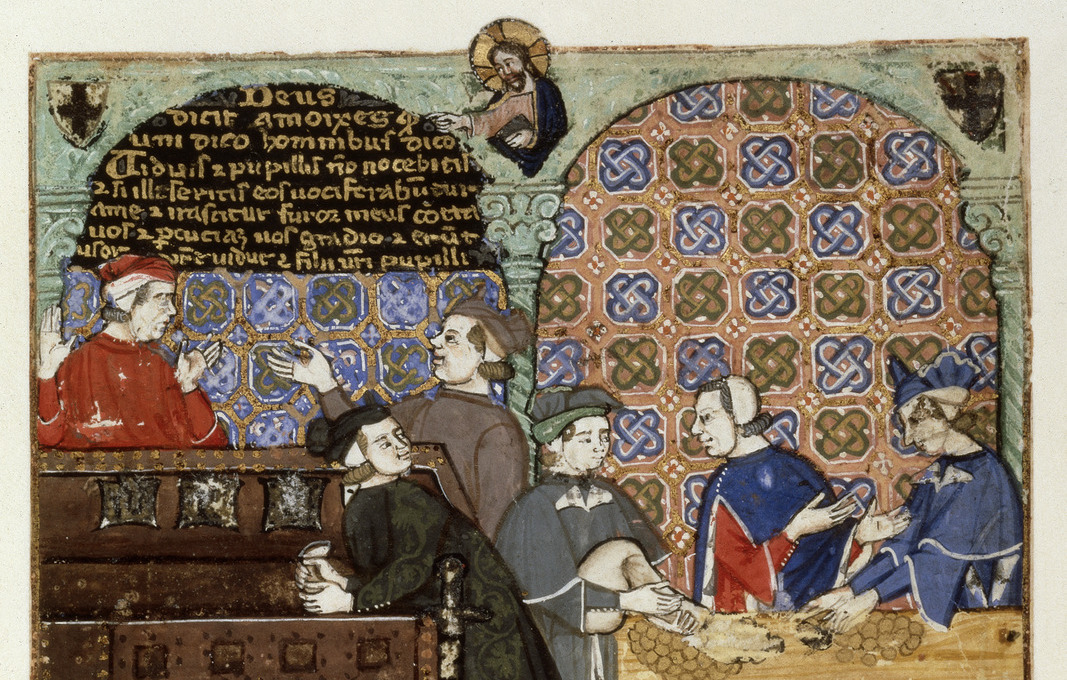 Deus
dicit a moixes q
uni dico hominibus dico
Uiduis ⁊ pupillis no nocebitis
⁊ si illeseritis eos uociferabu
ame, ⁊ irascitur furor meus cotra
uos ⁊ pcuciaz uos gradio ⁊ erut
uidue ⁊ filii uri pupilli